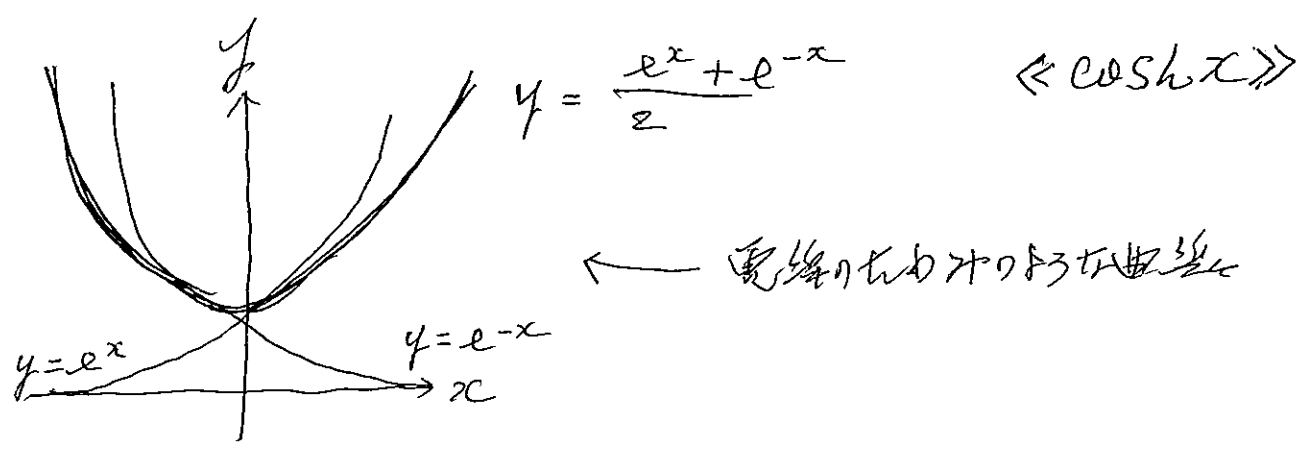 y
y = (e^x + e^{-x})/2 《cosh x》
← 電線のたわみのような曲線
y = e^x
y = e^{-x}
x